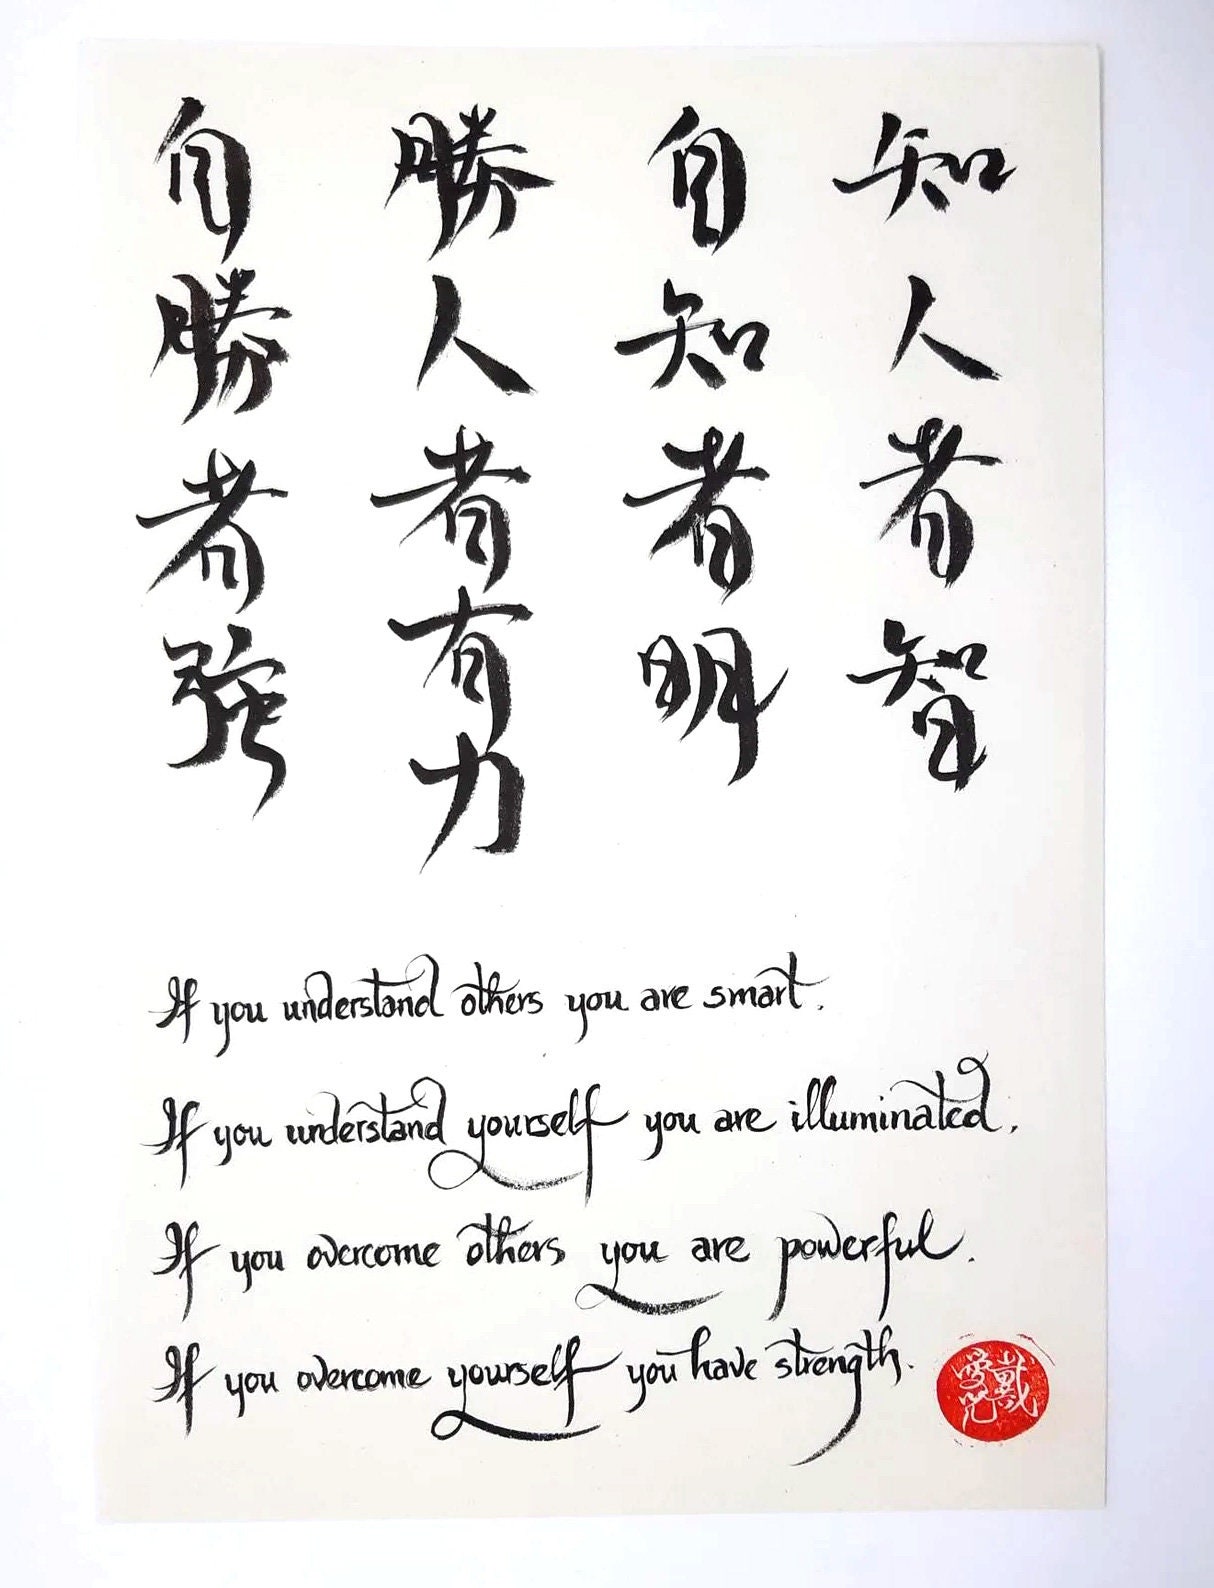 知人者智
自知者明
勝人者有力
自勝者強
If you understand others you are smart.
If you understand yourself you are illuminated.
If you overcome others you are powerful.
If you overcome yourself you have strength.
戴